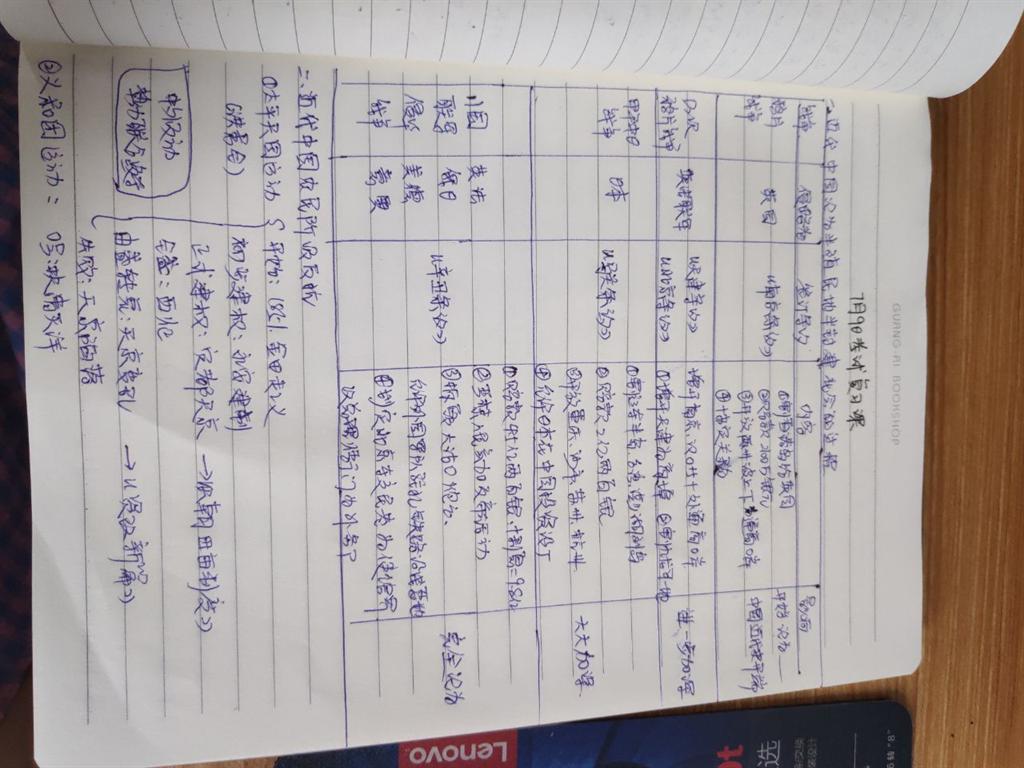 GUANG RI BOOKSHOP
7月9日 考试复习课
一、近代中国沦为半殖民地半封建社会的过程
战争 侵略国 签订条约 内容 影响
鸦片战争 英国 《南京条约》 ①割香港岛给英国 ②赔款2100万银元 ③开放五处通商口岸 ④协定关税 开始沦为 中国近代史开端
英法联军 《天津条约》 增开南京、汉口十处通商口岸 进一步加深
《北京条约》 ①增开天津为商埠
甲午中日战争 日本 《马关条约》 ①割辽东半岛、台湾、澎湖 ②赔款2亿两白银 ③开放重庆、沙市、苏州、杭州 ④允许日本在中国投资设厂 大大加深
八国联军侵华战争 英法 俄日 美德 意奥 《辛丑条约》 ①赔款4.5亿两白银,本利息=9.8亿 ②严禁人民参加反帝活动 ③拆毁大沽口炮台,允许外国军队驻扎铁路沿线要地 ④划定东交民巷为使馆界 改总理衙门为外务部 完全沦为
二、近代中国农民阶级反抗
①太平天国运动 开始:1851.金田起义
(洪秀全) 初步建权:永安建制
正式建权:定都天京 →《天朝田亩制度》
中外反动势力联合绞杀
全盛:西征
由盛转衰:天京变乱 →《资政新篇》
失败:天京陷落
②义和团运动: 口号:扶清灭洋
Lenovo
选